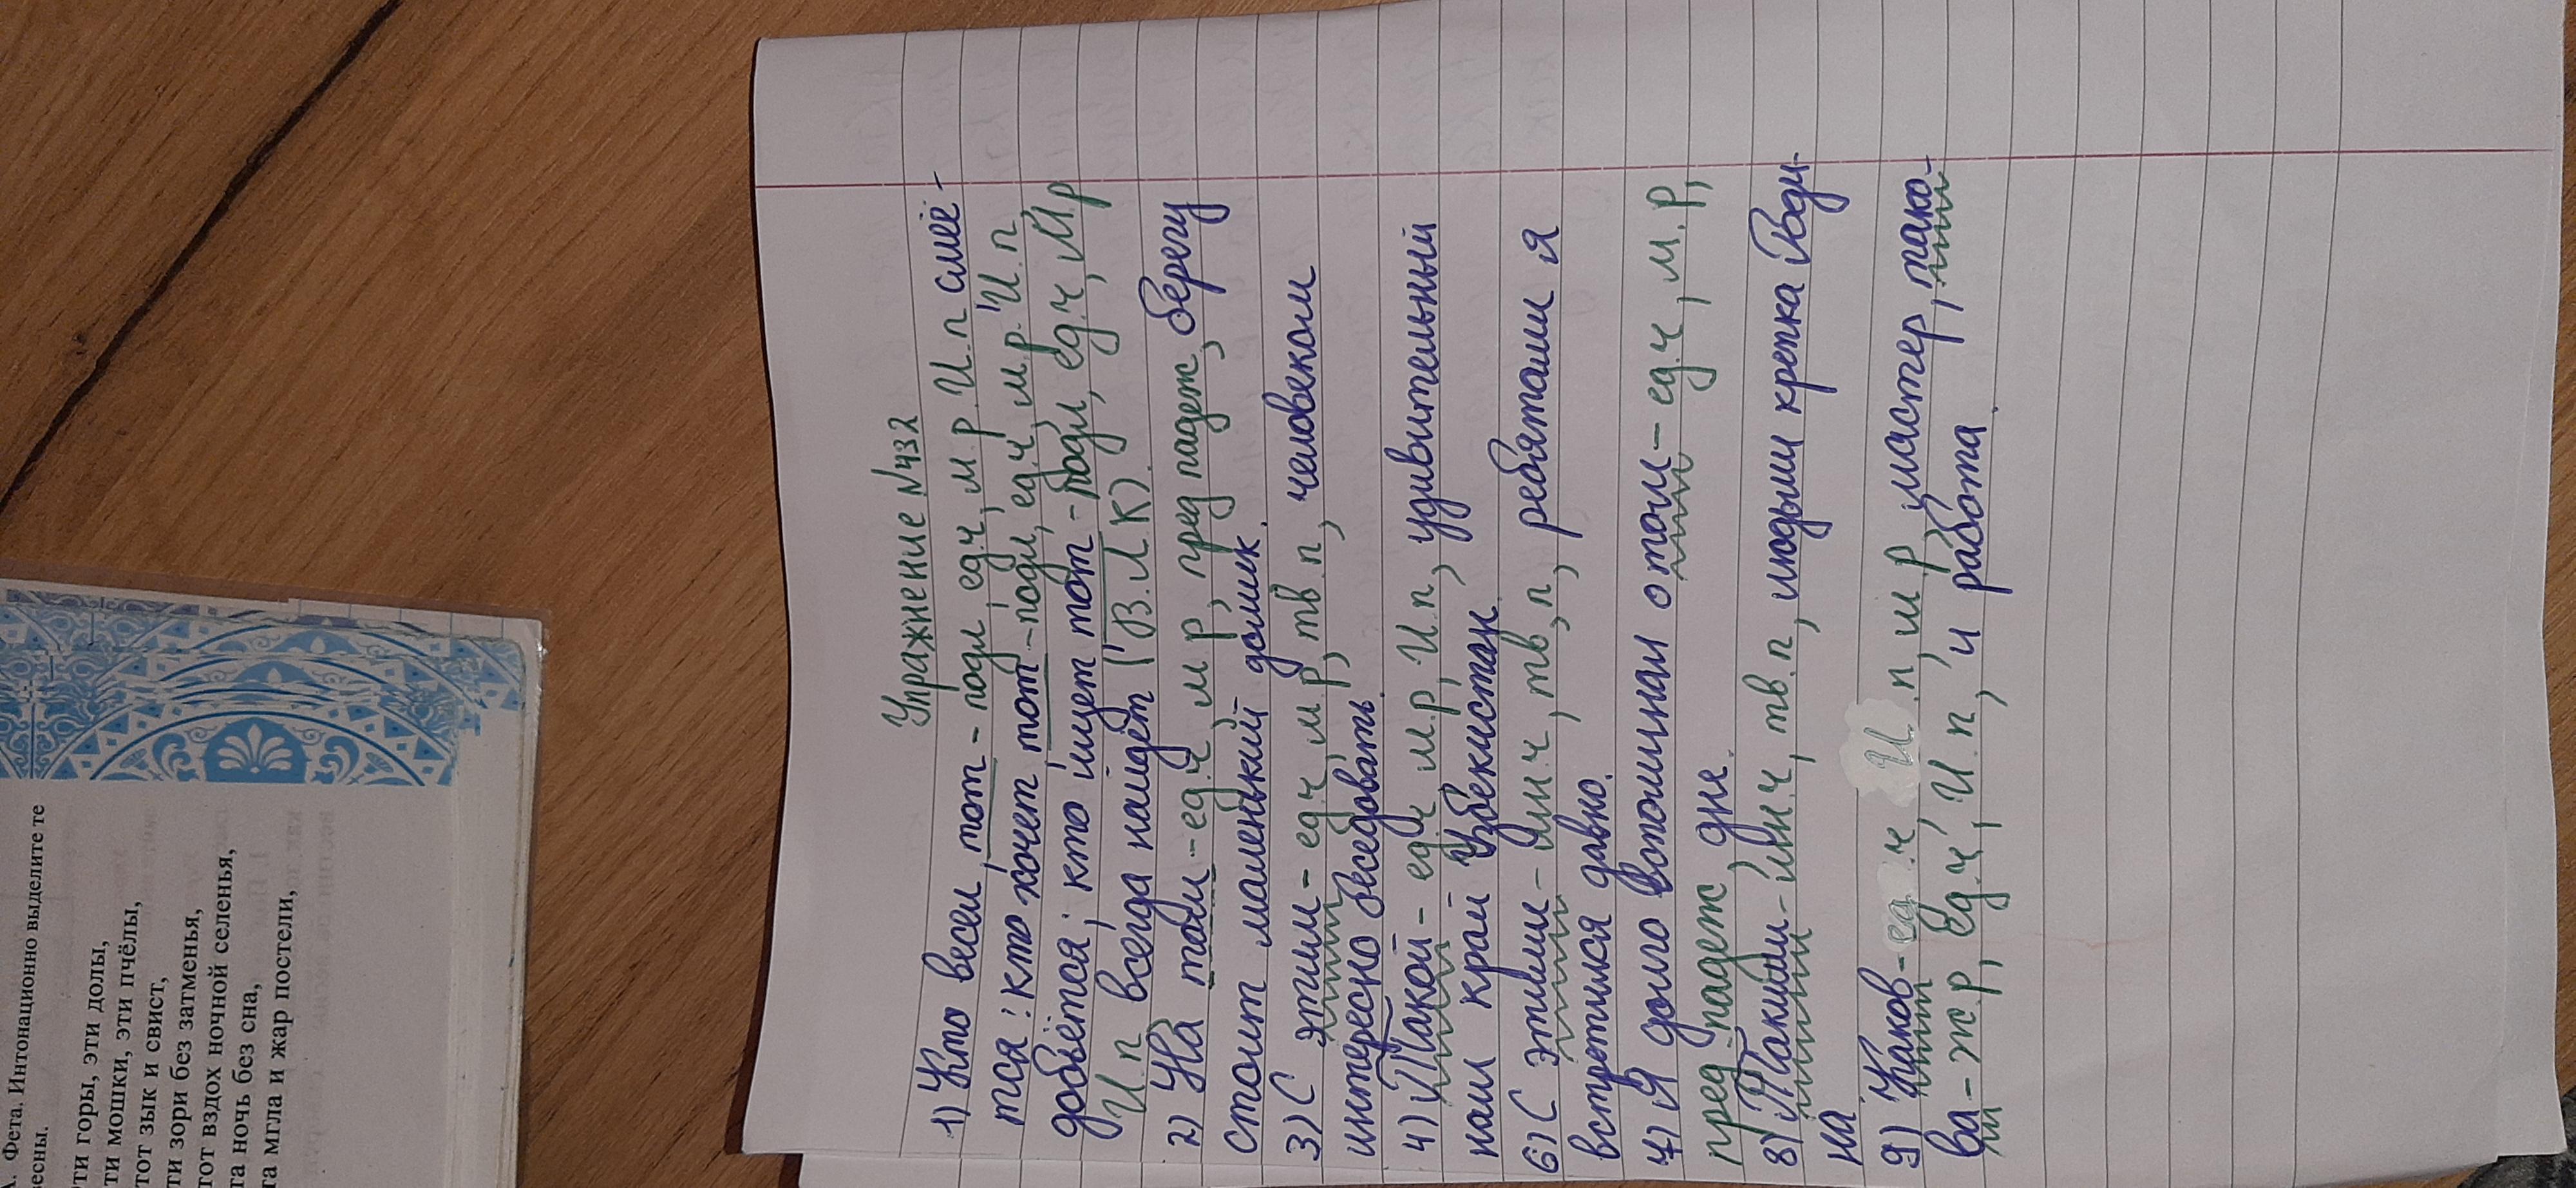 А. Фета. Интонационно выделите те
весны.
эти горы, эти долы,
эти мошки, эти пчёлы,
этот зык и свист,
эти зори без затменья,
этот вздох ночной селенья,
эта ночь без сна,
эта мгла и жар постели,
Упражнение №432
1) Кто весел, тот - подл, ед.ч, м.р. И.п смеё-
тся: кто хочет, тот - подл, ед.ч, м.р. И.п
добьётся; кто ищет тот - подл, ед.ч, М.р
И.п всегда найдёт! (В.Л.К).
2) На том - ед.ч, м.р, пред падеж, берегу
стоит маленький домик.
3) С этим - ед.ч, м.р, тв.п, человеком
интересно беседовать.
4) Такой - ед.ч, м.р, И.п, удивительный
наш край Узбекистан.
6) С этими - мн.ч, тв,п, ребятами я
встретился давно.
7) Я долго вспоминал о том - ед.ч, м.р,
пред-падеж, дне.
8) Такими - мн.ч, тв.п, людьми крепка Роди-
на
9) Каков - ед.ч, И.п, м.р мастер, тако-
ва - ж.р, ед.ч, И.п, и работа.